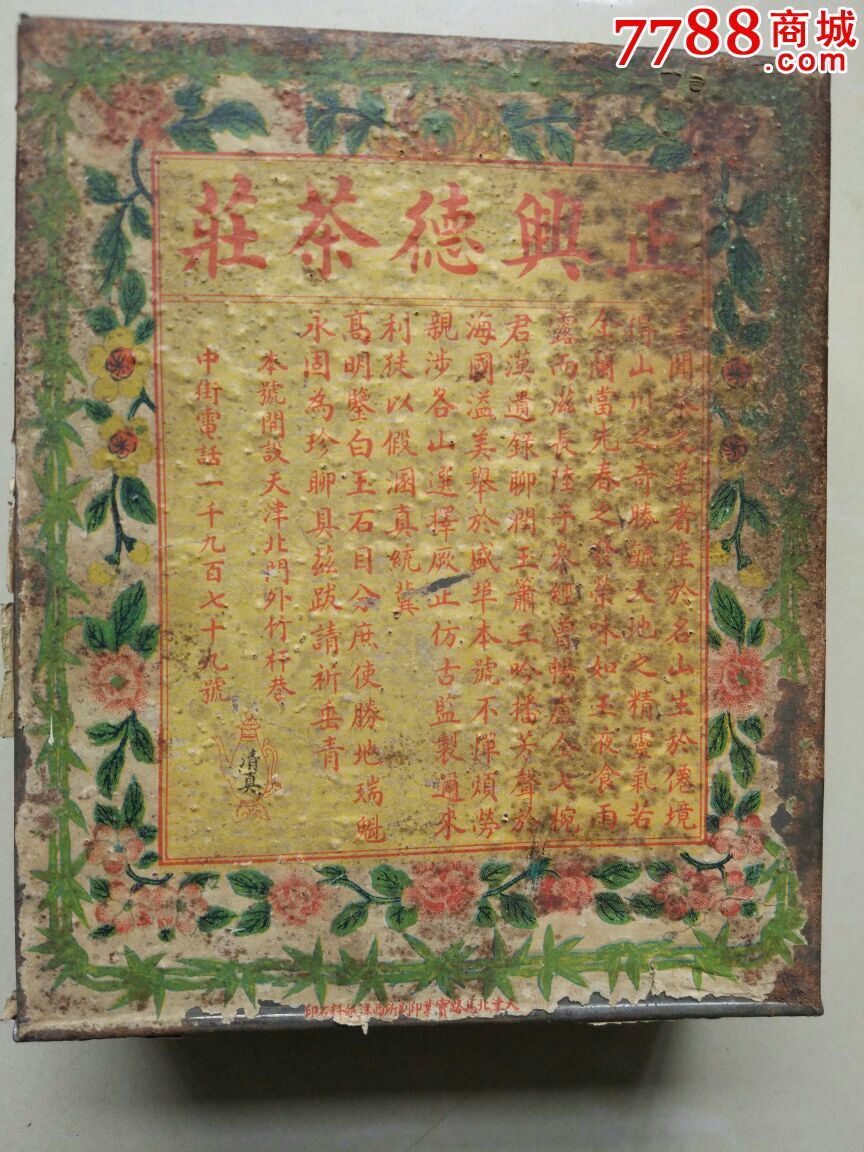 7788商城
.com
正興德茶莊
蓋聞茶之美者產於名山生於僊境
得山川之奇勝毓天地之精靈氣若
金蘭當先春之發榮味如玉液食雨
露而滋長陸子茶經曾暢盧仝七椀
君謨遺錄聊潤玉簫三吟播芳聲於
海國溢美舉於盛埠本號不憚煩勞
親涉各山選擇厥正仿古監製通來
利徒以假溷真統冀
高明鑒白玉石目分庶使勝地瑞魁
永固為珍聊具茲跋請祈垂青
本號開設天津北門外竹杆巷
中街電話一千九百七十九號
清真
天津北馬路實業印刷所西洋紙料石印